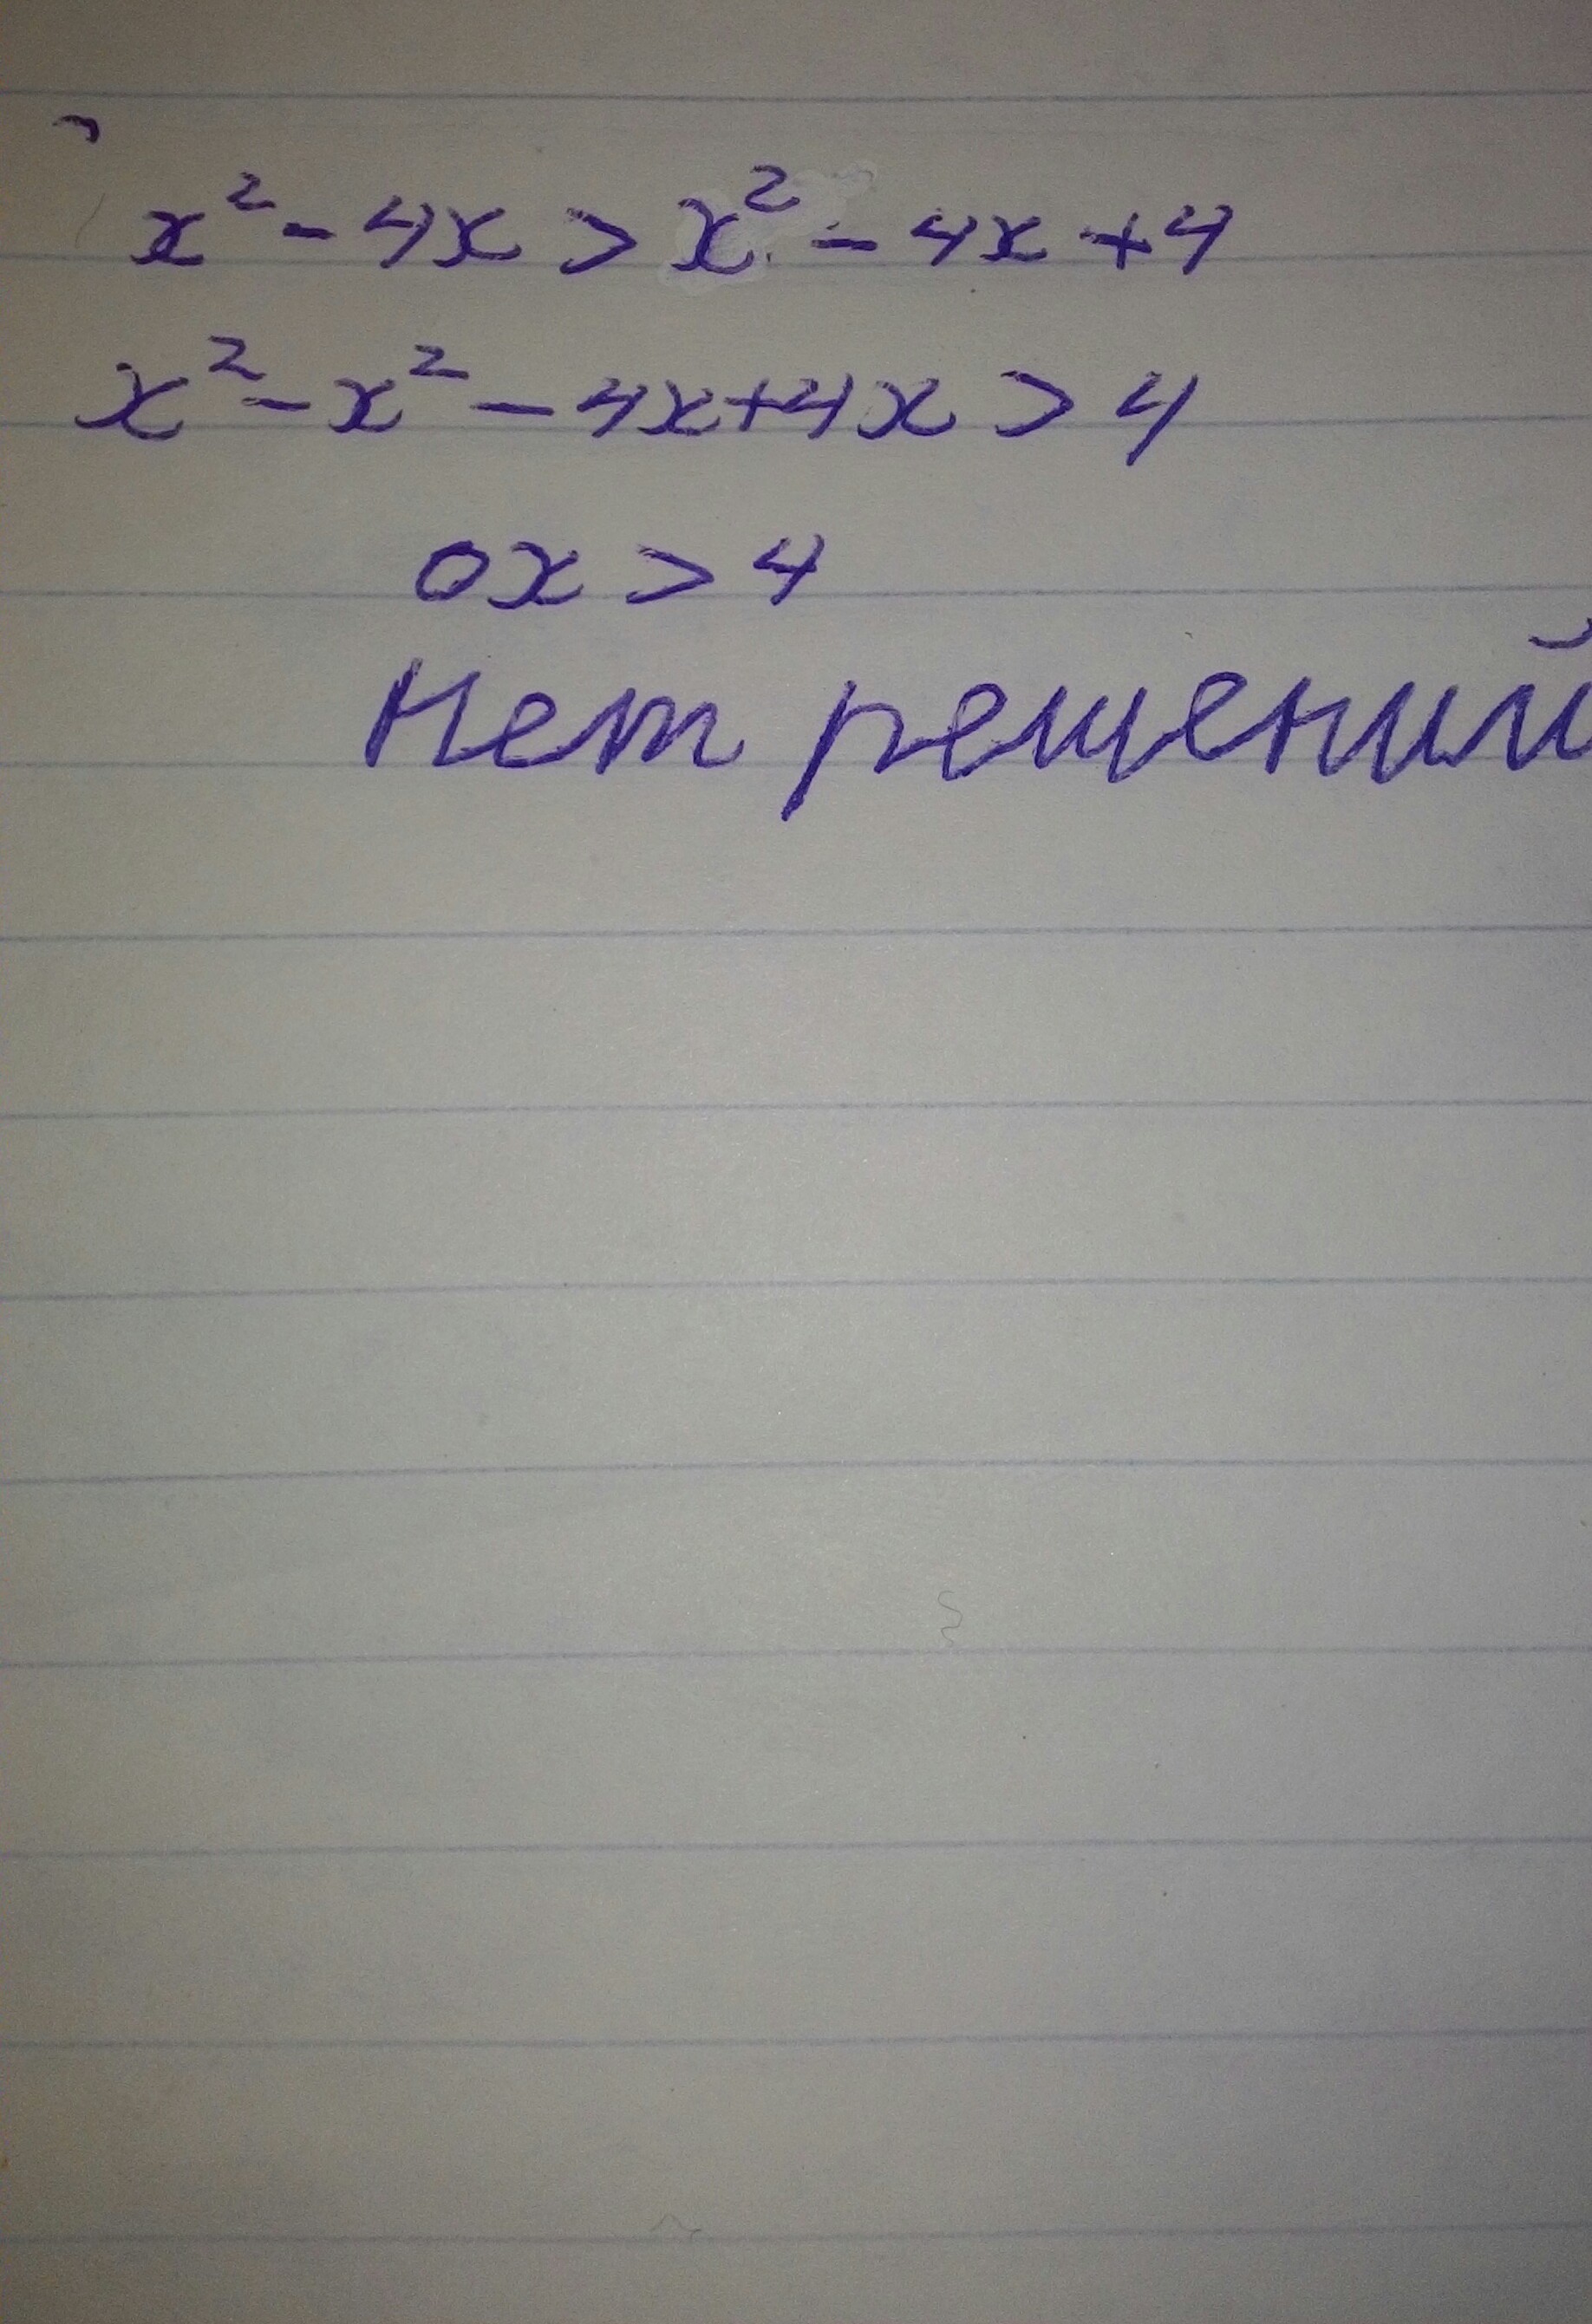 x² - 4x > x² - 4x + 4
x² - x² - 4x + 4x > 4
0x > 4
Нет решений